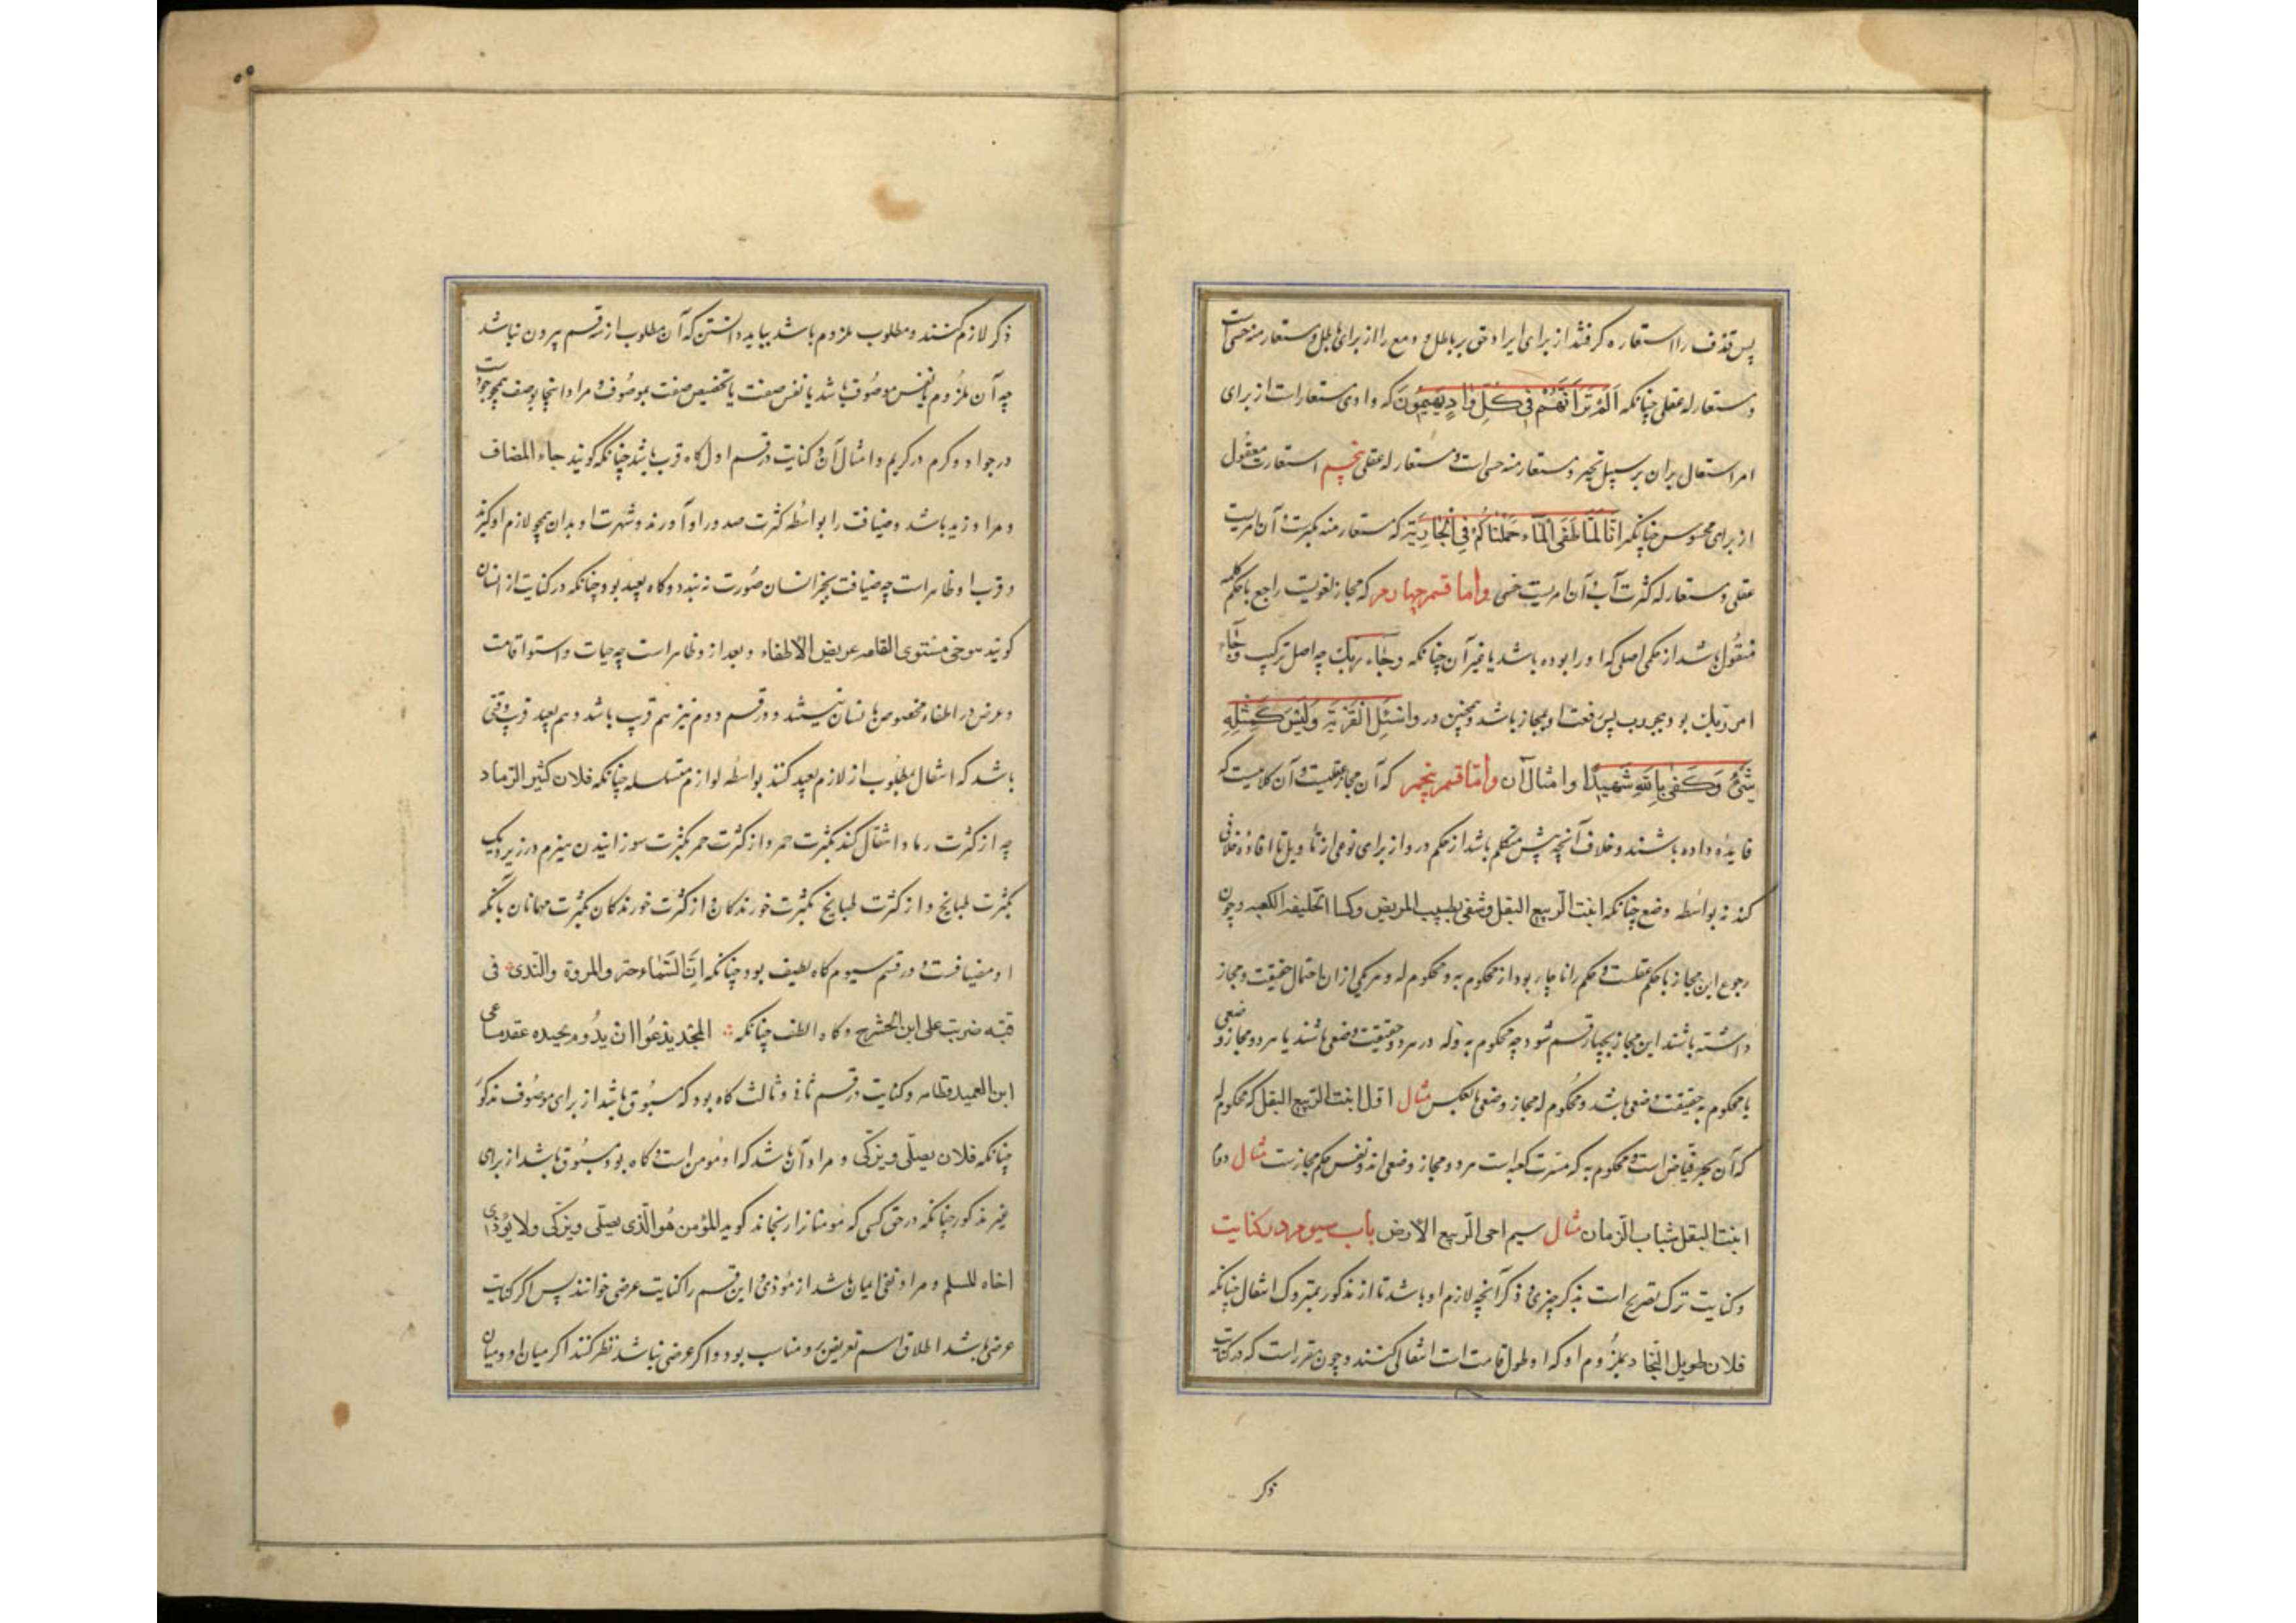 پس قذف را استعاره گرفتند از برای ایراد حق بر باطل و دمغ را از برای اذهاب باطل و مستعار منه حسی است
و مستعار له عقلی چنانکه اَلَمْ تَرَ اَنَّهُمْ فی کُلِّ وادٍ یَهیمُونَ که وادی مستعار است از برای
امر استعال بران بر سبیل تحیر و مستعار منه حسی است و مستعار له عقلی پنجم استعارت معقول
از برای محسوس چنانکه اِنّا لَمّا طَغَی الْمآء حَمَلْناکُمْ فِی الْجارِیَة که مستعار منه تکبرست و آن امریست
عقلی و مستعار له کثرت آب و آن امریست حسی واما قسم چهارم که مجاز لغویست راجع با حکم کلمه
منقول باشد از حکمی اصلی که او را بوده باشد یا غیر آن چنانکه وجاء ربک چه اصل ترکیب وجاء
امر ربک بود بجر رب پس رفعت او مجاز باشد و همچنین در واسْئَلِ الْقَرْیَةَ وَ لَیْسَ کَمِثْلِهِ
شَیْءٌ وَکَفی بِاللهِ شَهیدًا و امثال آن واما قسم پنجم که آن مجاز عقلیست و آن کلامیست که
فایده داده باشند و خلاف آنچه پیش متکلم باشد از حکم درو از برای نوعی از تأویل تا افاده خلافی
کند نه بواسطه وضع چنانکه انبت الربیع البقل و شفی الطبیب المریض و کسا الخلیفة الکعبه و چون
رجوع این مجاز با حکم عقلست و حکم را ناچار بود از محکوم به و محکوم له و هر یکی ازان احتمال حقیقت و مجاز
داشته باشند این مجاز بچهار قسم شود چه محکوم به و له در هر دو حقیقت وضعی باشند یا هر دو مجاز وضعی
یا محکوم به حقیقت وضعی باشد و محکوم له مجاز وضعی یا بعکس مثال اول انبت الربیع البقل که محکوم له
که آن بحر فیاض است و محکوم به که مسرت کعبه است هر دو مجاز وضعی اند و نفس حکم مجازست مثال دوم
انبت البقل شباب الزمان مثال سیم احی الربیع الارض باب سیوم در کنایت
و کنایت ترک تصریح است بذکر چیزی و ذکر آنچه لازم او باشد تا از مذکور بمتروک انتقال چنانکه
فلان طویل النجاد بملزوم او که او طول قامت است انتقال کنند و چون مقرر است که در کنایت
ذکر
ذکر لازم کنند و مطلوب ملزوم باشد بباید دانستن که آن مطلوب از سه قسم بیرون نباشد
چه آن ملزوم یا نفس موصوف باشد یا نفس صفت یا تخصیص صفت بموصوف و مراد اینجا بوصف همچو جودست
در جواد و کرم در کریم و امثال آن و کنایت در قسم اول گاه قریب باشد چنانکه گویند جاء المضاف
و مراد زید باشد و ضیافت را بواسطه کثرت صدور او آورند و شهرت او بدان همچو لازم او گیرند
و قرب او ظاهر است چه ضیافت بجز انسان صورت نبندد و گاه بعید بود چنانکه در کنایت از انسان
گویند هوحی مستوی القامه عریض الاظفاء و بعد از و ظاهر است چه حیات و استوا قامت
و عرض در اظفاء مخصوص بانسان نیستند و در قسم دوم نیز هم قریب باشد و هم بعید قریب وقتی
باشد که انتقال بمطلوب از لازم بعید کنند بواسطه لوازم متسلسله چنانکه فلان کثیر الرماد
چه از کثرت رماد انتقال کنند بکثرت جمر و از کثرت جمر بکثرت سوزانیدن هیزم در زیر دیگ
بکثرت طبایخ و از کثرت طبایخ بکثرت خورندگان و از کثرت خورندگان بکثرت مهمانان بآنکه
او مضیافست و در قسم سیوم گاه لطیف بود چنانکه اِنَّ السَّماحة والمروة والندی فی
قبة ضربت علی ابن الحشرج و گاه الطف چنانکه المجد یدعوا ان یدوم بجیده عقد مساعی
ابن العمید نظامه و کنایت در قسم ثانی و ثالث گاه بود که مسبوق باشد از برای موصوف مذکور
چنانکه فلان یصلّی و یزکّی و مراد آن باشد که او مومن است و گاه بود مسبوق باشد از برای
غیر مذکور چنانکه در حق کسی که مومنانرا رنجاند گوید المؤمن هو الّذی یصلّی و یزکی ولا یؤذی
اخاه المسلم و مراد نفی ایمان باشد از موذی و این قسم را کنایت عرضی خوانند پس اگر کنایت
عرضی باشد اطلاق اسم تعریض برو مناسب بود و اگر عرضی نباشد نظر کنند اگر میان او و میان